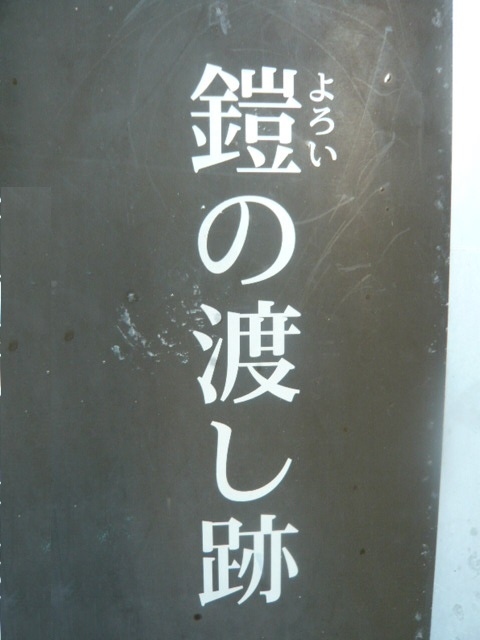 鎧の渡し跡
よろい